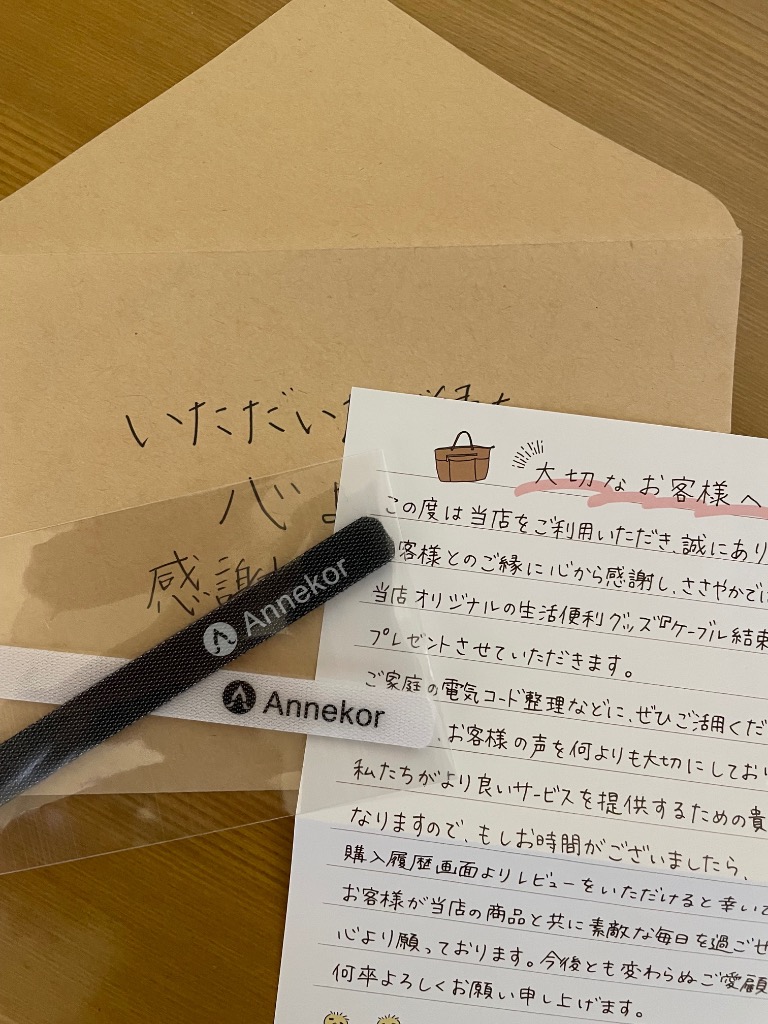 いただいた
心よ
感謝
Annekor
Annekor
大切なお客様へ
この度は当店をご利用いただき、誠にあり
客様とのご縁に心から感謝し、ささやかでは
当店オリジナルの生活便利グッズ『ケーブル結束
プレゼントさせていただきます。
ご家庭の電気コード整理などに、ぜひご活用くだ
、お客様の声を何よりも大切にしており
私たちがより良いサービスを提供するための貴
なりますので、もしお時間がございましたら、
購入履歴画面よりレビューをいただけると幸いで
お客様が当店の商品と共に素敵な毎日を過ごせ
心より願っております。今後とも変わらぬご愛顧
何卒よろしくお願い申し上げます。